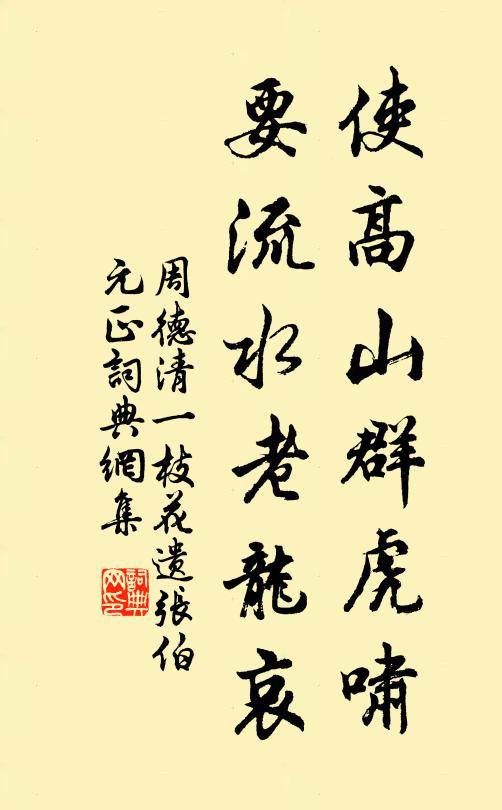 使高山群虎啸
要流水老龍哀
周德清一枝花遗張伯
元正詞典網集
詞典
网印